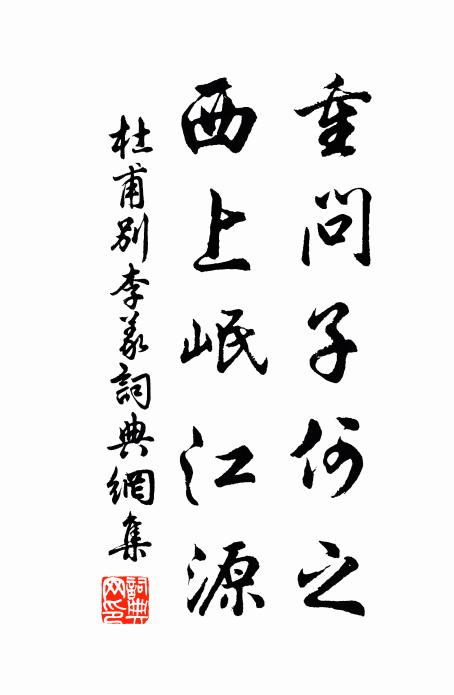 重問子何之
西上岷江源
杜甫別李義詞典網集
詞典網印